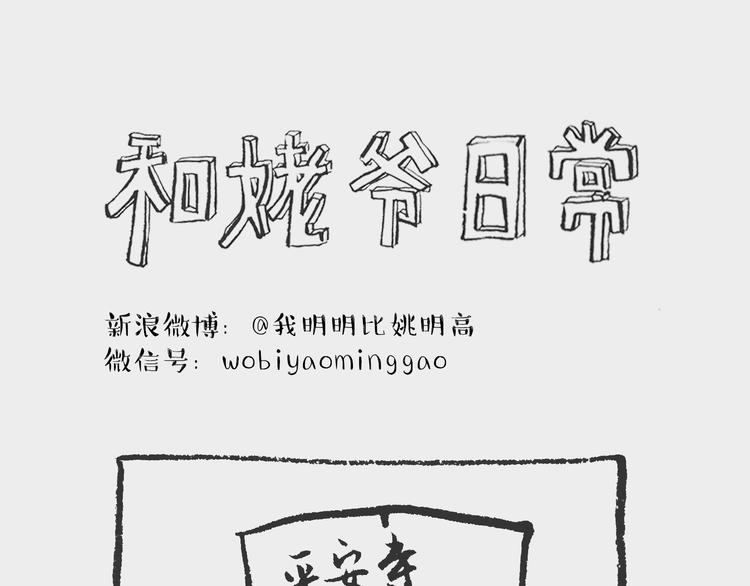 和姥爷日常
新浪微博：@我明明比姚明高
微信号：wobiyaominggao
平安寺